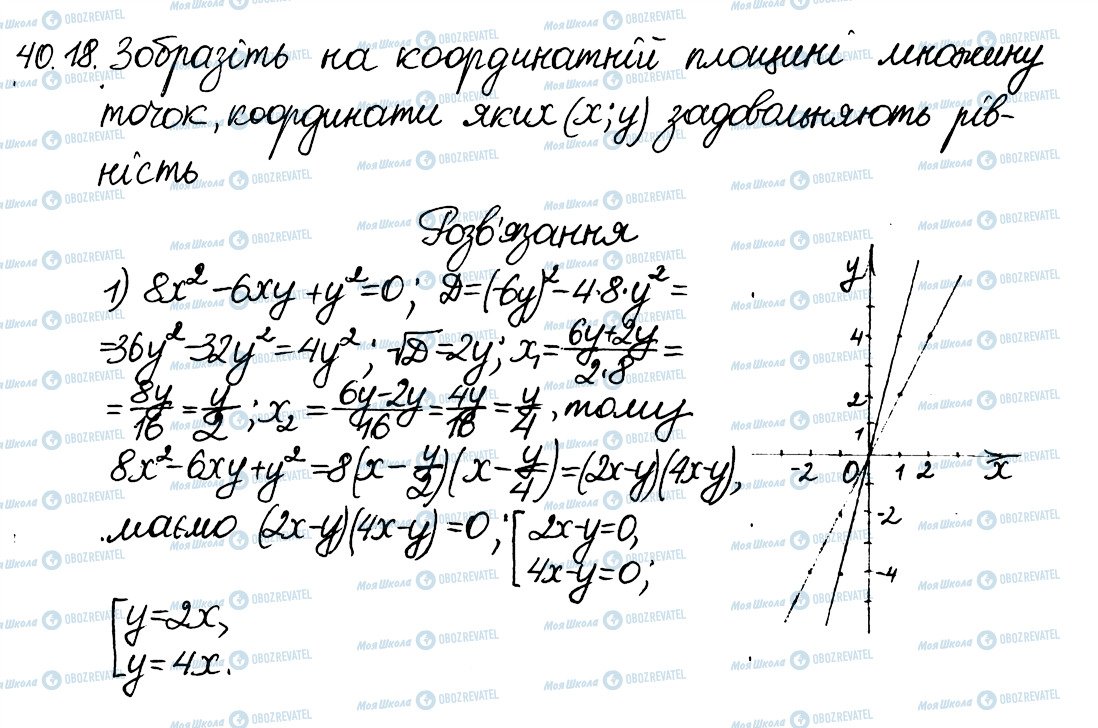 40.18. Зобразіть на координатній площині множину
точок, координати яких (x; y) задовольняють рів-
ність
Розв'язання
1) 8x² - 6xy + y² = 0; D = (-6y)² - 4·8·y² =
= 36y² - 32y² = 4y²; √D = 2y; x₁ = (6y+2y)/(2·8) =
= 8y/16 = y/2; x₂ = (6y-2y)/16 = 4y/16 = y/4, тому
8x² - 6xy + y² = 8(x - y/2)(x - y/4) = (2x-y)(4x-y),
маємо (2x-y)(4x-y) = 0; [ 2x-y=0,
4x-y=0;
[ y=2x,
y=4x.
y
4
2
1
-2 0 1 2 x
-2
-4
МояШкола OBOZREVATEL